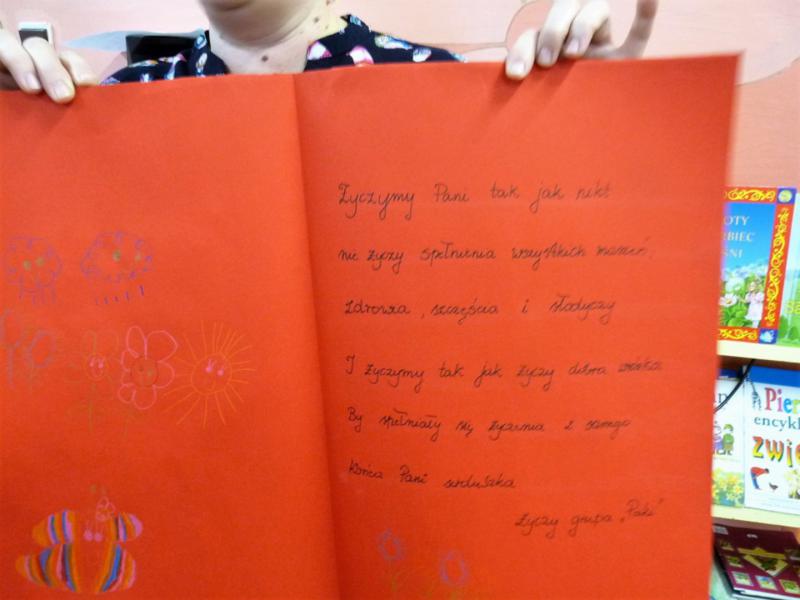 Życzymy Pani tak jak nikt
nie życzy spełnienia wszystkich marzeń,
zdrowia, szczęścia i słodyczy
I życzymy tak jak życzy dobra wróżka
By spełniały się życzenia z samego
końca Pani serduszka
życzy grupa „
OTY
RBIEC
ŚNI
Pier
encykl
zwie